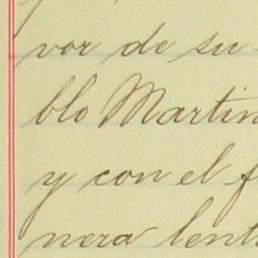 vor de su
blo Martin
y con el f
nera lent